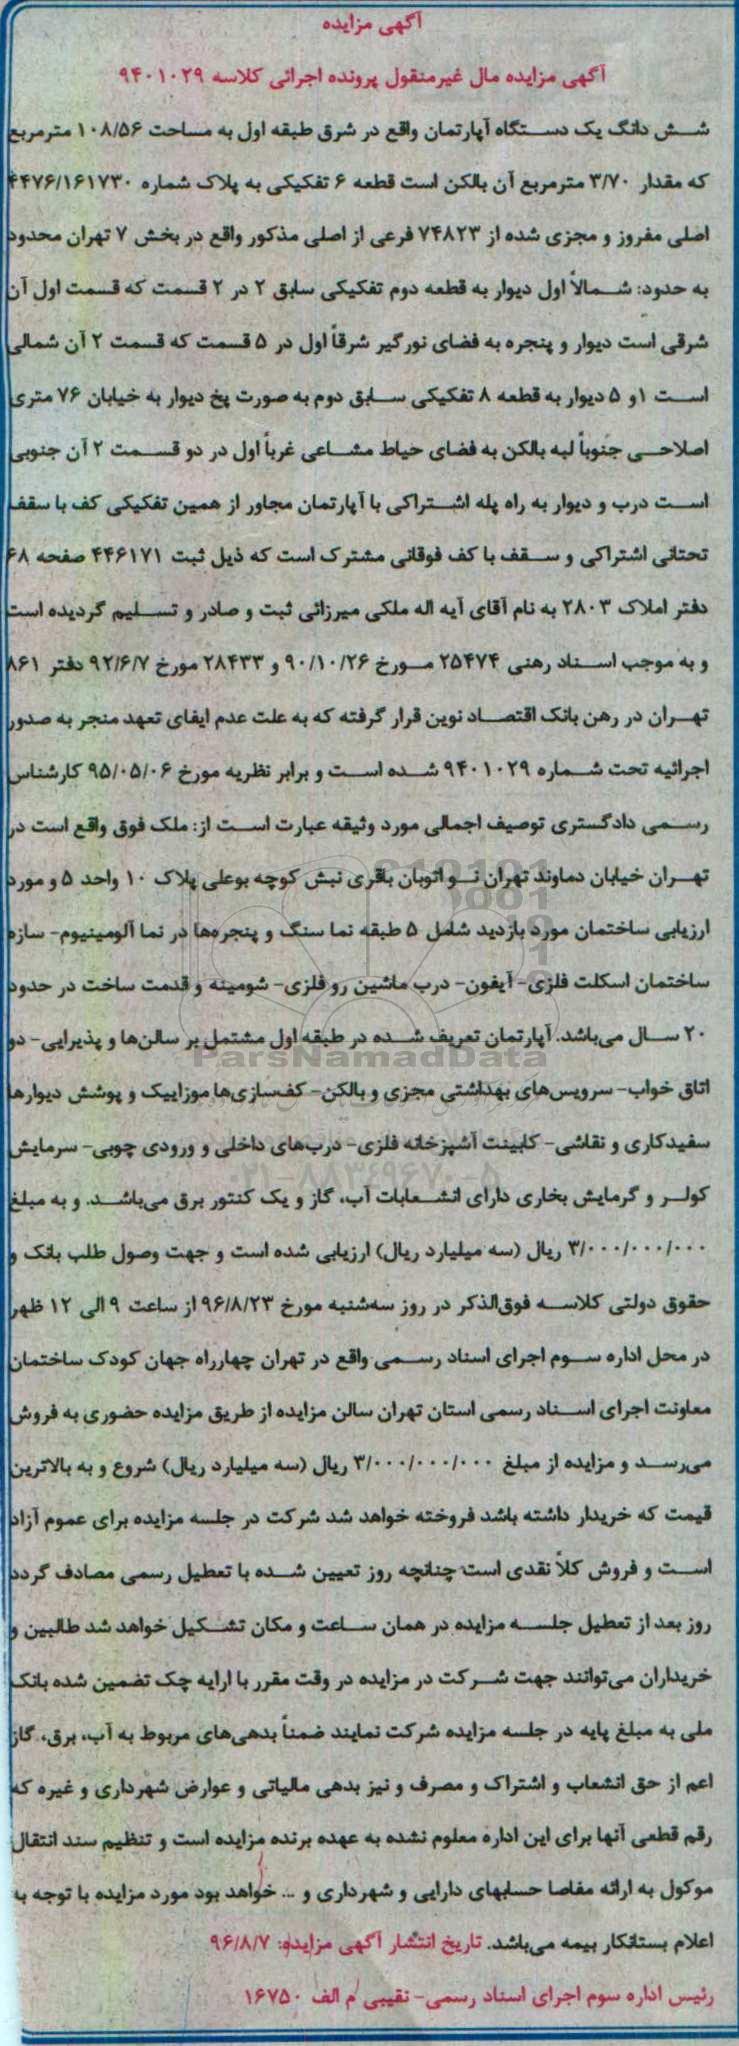 آگهی مزایده
آگهی مزایده مال غیرمنقول پرونده اجرائی کلاسه ۹۴۰۱۰۲۹
شش دانگ یک دستگاه آپارتمان واقع در شرق طبقه اول به مساحت ۱۰۸/۵۶ مترمربع
که مقدار ۳/۷۰ مترمربع آن بالکن است قطعه ۶ تفکیکی به پلاک شماره ۴۴۷۶/۱۶۱۷۳۰
اصلی مفروز و مجزی شده از ۷۴۸۲۳ فرعی از اصلی مذکور واقع در بخش ۷ تهران محدود
به حدود: شمالاً اول دیوار به قطعه دوم تفکیکی سابق ۲ در ۲ قسمت که قسمت اول آن
شرقی است دیوار و پنجره به فضای نورگیر شرقاً اول در ۵ قسمت که قسمت ۲ آن شمالی
است ۱و ۵ دیوار به قطعه ۸ تفکیکی سابق دوم به صورت پخ دیوار به خیابان ۷۶ متری
اصلاحی جنوباً لبه بالکن به فضای حیاط مشاعی غرباً اول در دو قسمت ۲ آن جنوبی
است درب و دیوار به راه پله اشتراکی با آپارتمان مجاور از همین تفکیکی کف با سقف
تحتانی اشتراکی و سقف با کف فوقانی مشترک است که ذیل ثبت ۴۴۶۱۷۱ صفحه ۶۸
دفتر املاک ۲۸۰۳ به نام آقای آیه اله ملکی میرزائی ثبت و صادر و تسلیم گردیده است
و به موجب اسناد رهنی ۲۵۴۷۴ مورخ ۹۰/۱۰/۲۶ و ۲۸۴۳۳ مورخ ۹۲/۶/۷ دفتر ۸۶۱
تهران در رهن بانک اقتصاد نوین قرار گرفته که به علت عدم ایفای تعهد منجر به صدور
اجرائیه تحت شماره ۹۴۰۱۰۲۹ شده است و برابر نظریه مورخ ۹۵/۰۵/۰۶ کارشناس
رسمی دادگستری توصیف اجمالی مورد وثیقه عبارت است از: ملک فوق واقع است در
تهران خیابان دماوند تهران نو اتوبان باقری نبش کوچه بوعلی پلاک ۱۰ واحد ۵ و مورد
ارزیابی ساختمان مورد بازدید شامل ۵ طبقه نما سنگ و پنجره‌ها در نما آلومینیوم- سازه
ساختمان اسکلت فلزی- آیفون- درب ماشین رو فلزی- شومینه و قدمت ساخت در حدود
۲۰ سال می‌باشد. آپارتمان تعریف شده در طبقه اول مشتمل بر سالن‌ها و پذیرایی- دو
ParsNamadData
اتاق خواب- سرویس‌های بهداشتی مجزی و بالکن- کف‌سازی‌ها موزاییک و پوشش دیوارها
سفیدکاری و نقاشی- کابینت آشپزخانه فلزی- درب‌های داخلی و ورودی چوبی- سرمایش
۰۲۱-۸۸۳۴۹۶۷۰-۵
کولر و گرمایش بخاری دارای انشعابات آب، گاز و یک کنتور برق می‌باشد. و به مبلغ
۳/۰۰۰/۰۰۰/۰۰۰ ریال (سه میلیارد ریال) ارزیابی شده است و جهت وصول طلب بانک و
حقوق دولتی کلاسه فوق‌الذکر در روز سه‌شنبه مورخ ۹۶/۸/۲۳ از ساعت ۹ الی ۱۲ ظهر
در محل اداره سوم اجرای اسناد رسمی واقع در تهران چهارراه جهان کودک ساختمان
معاونت اجرای اسناد رسمی استان تهران سالن مزایده از طریق مزایده حضوری به فروش
می‌رسد و مزایده از مبلغ ۳/۰۰۰/۰۰۰/۰۰۰ ریال (سه میلیارد ریال) شروع و به بالاترین
قیمت که خریدار داشته باشد فروخته خواهد شد شرکت در جلسه مزایده برای عموم آزاد
است و فروش کلاً نقدی است چنانچه روز تعیین شده با تعطیل رسمی مصادف گردد
روز بعد از تعطیل جلسه مزایده در همان ساعت و مکان تشکیل خواهد شد طالبین و
خریداران می‌توانند جهت شرکت در مزایده در وقت مقرر با ارایه چک تضمین شده بانک
ملی به مبلغ پایه در جلسه مزایده شرکت نمایند ضمناً بدهی‌های مربوط به آب، برق، گاز
اعم از حق انشعاب و اشتراک و مصرف و نیز بدهی مالیاتی و عوارض شهرداری و غیره که
رقم قطعی آنها برای این اداره معلوم نشده به عهده برنده مزایده است و تنظیم سند انتقال
موکول به ارائه مفاصا حسابهای دارایی و شهرداری و ... خواهد بود مورد مزایده با توجه به
اعلام بستانکار بیمه می‌باشد. تاریخ انتشار آگهی مزایده: ۹۶/۸/۷
رئیس اداره سوم اجرای اسناد رسمی- نقیبی م الف ۱۶۷۵۰